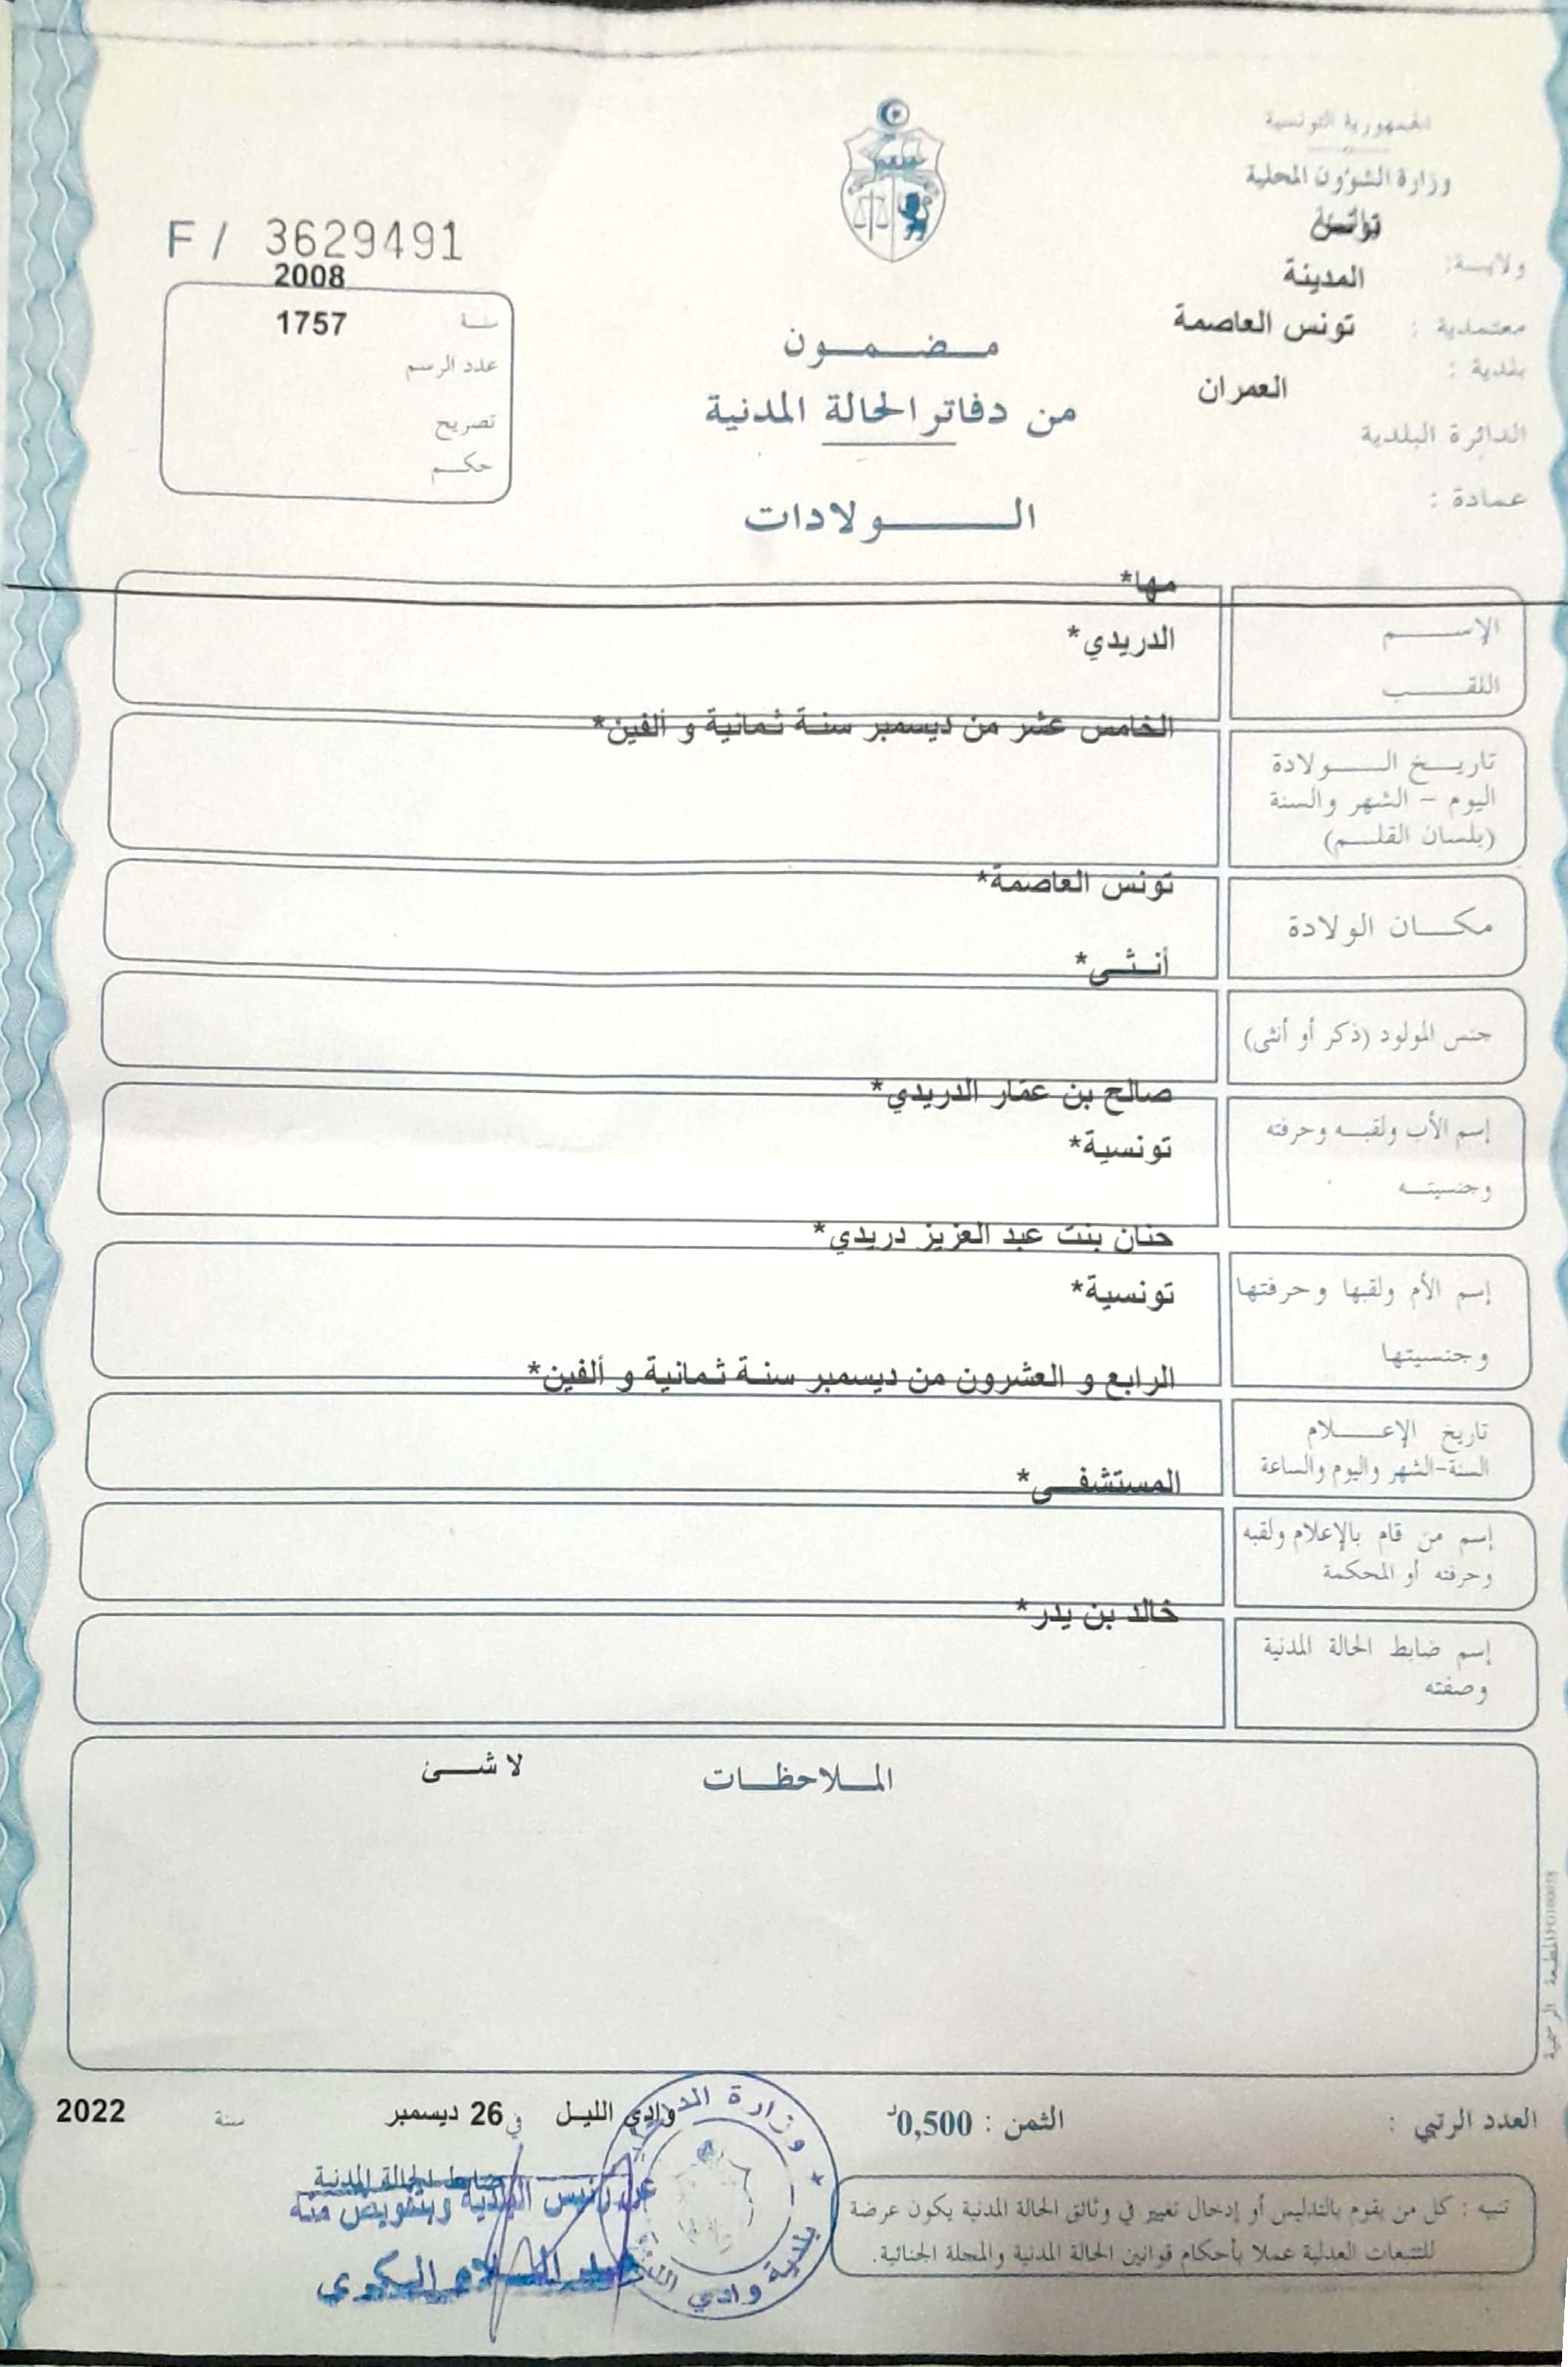 الجمهورية التونسية
وزارة الشؤون المحلية
ولايـة:
تونس
المدينة
معتمدية :
تونس العاصمة
بلدية :
العمران
الدائرة البلدية
عمادة :
F / 3629491
2008
سنة
1757
عدد الرسم
تصريح
حكـم
مـضـمـون
من دفاتر الحالة المدنية
الـــولادات
مها*
الإســـم
الدريدي*
اللقـــب
الخامس عشر من ديسمبر سنة ثمانية و ألفين*
تاريـخ الـــولادة
اليوم - الشهر والسنة
(بلسان القلـم)
تونس العاصمة*
مكـــان الولادة
أنـثـى*
جنس المولود (ذكر أو أنثى)
صالح بن عمّار الدريدي*
إسم الأب ولقبـه وحرفته
تونسية*
وجنسيتـه
حنان بنت عبد العزيز دريدي*
إسم الأم ولقبها وحرفتها
تونسية*
وجنسيتها
الرابع و العشرون من ديسمبر سنة ثمانية و ألفين*
تاريخ الإعـــلام
السنة-الشهر واليوم والساعة
المستشفـى*
إسم من قام بالإعلام ولقبه
وحرفته أو المحكمة
خالد بن يدر*
إسم ضابط الحالة المدنية
وصفته
الملاحظـات
لا شـئ
المطبعة الرسمية
العدد الرتبي :
الثمن : 0,500د
وادي الليل في 26 ديسمبر سنة 2022
ضابط الحالة المدنية
عن رئيس البلدية وبتفويض منه
تنبيه : كل من يقوم بالتدليس أو إدخال تغيير في وثائق الحالة المدنية يكون عرضة
للتتبعات العدلية عملا بأحكام قوانين الحالة المدنية والمجلة الجنائية.
بلدية وادي